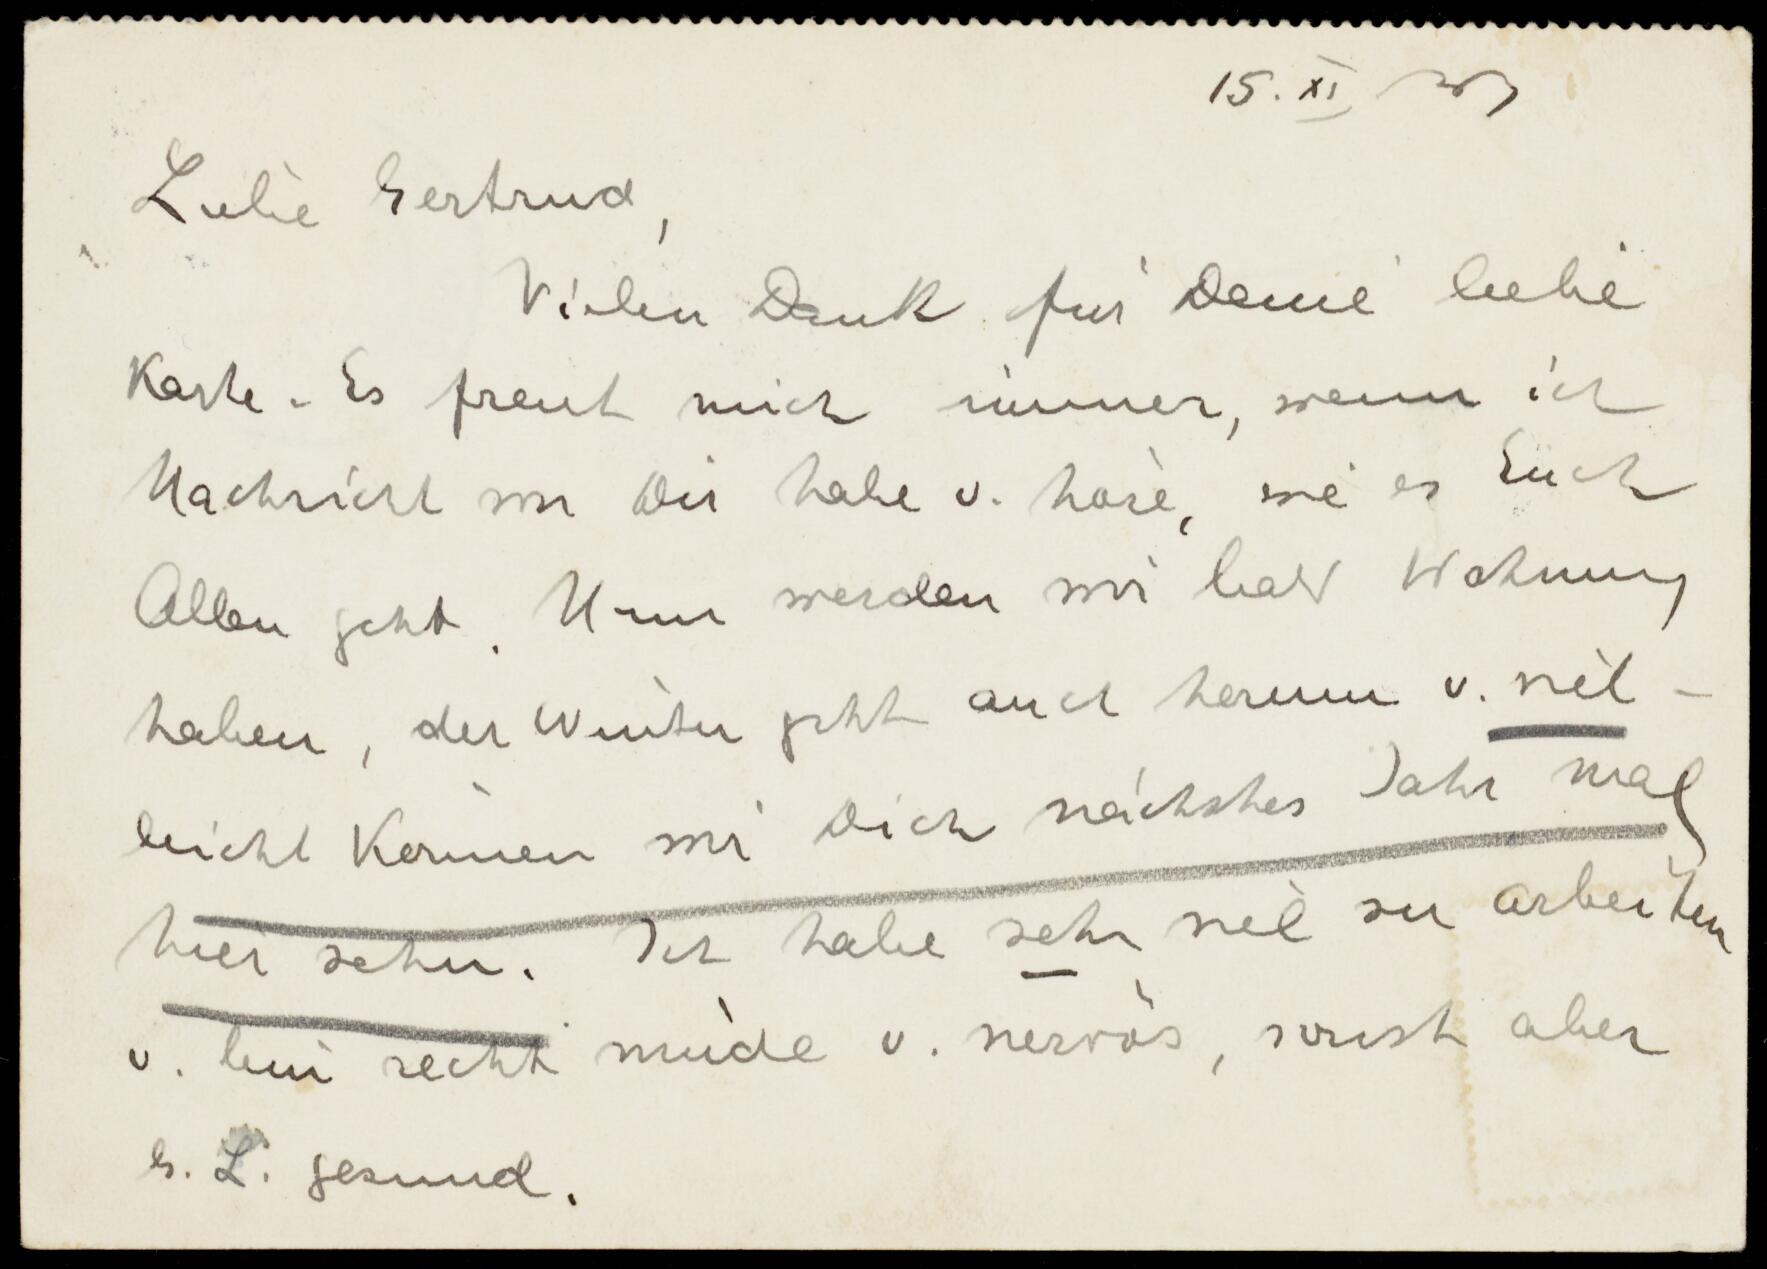 15. XI
Liebe Gertrud,
Vielen Dank für Deine liebe
Karte. Es freut mich immer, wenn ich
Nachricht von Dir habe u. höre, wie es Euch
Allen geht. Nun werden wir bald Wohnung
haben, der Winter geht auch herum u. viel-
leicht können wir Dich nächstes Jahr mal
hier sehn. Ich habe sehr viel zu arbeiten
u. bin recht müde u. nervös, sonst aber
G. L. gesund.